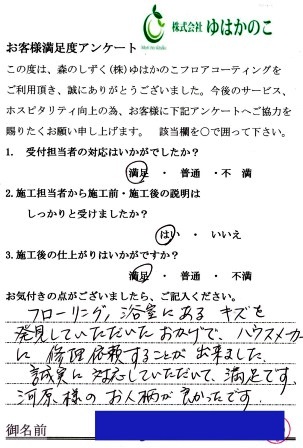 株式会社 ゆはかのこ
お客様満足度アンケート
この度は、森のしずく(株)ゆはかのこフロアコーティングを
ご利用頂き、誠にありがとうございました。今後のサービス、
ホスピタリティ向上の為、お客様に下記アンケートへご協力を
賜りたくお願い申し上げます。 該当欄を○で囲って下さい。
1. 受付担当者の対応はいかがでしたか?
満足 ・ 普通 ・ 不満
2.施工担当者から施工前・施工後の説明は
しっかりと受けましたか?
はい ・ いいえ
3.施工後の仕上がりはいかがですか?
満足 ・ 普通 ・ 不満
お気付きの点がございましたら、ご記入ください。
フローリング、浴室にある キズを
発見していただいた おかげで、ハウスメーカー
に 修理依頼することが 出来ました。
誠実に 対応していただいて、満足です。
河原様の お人柄が 良かったです。
御名前